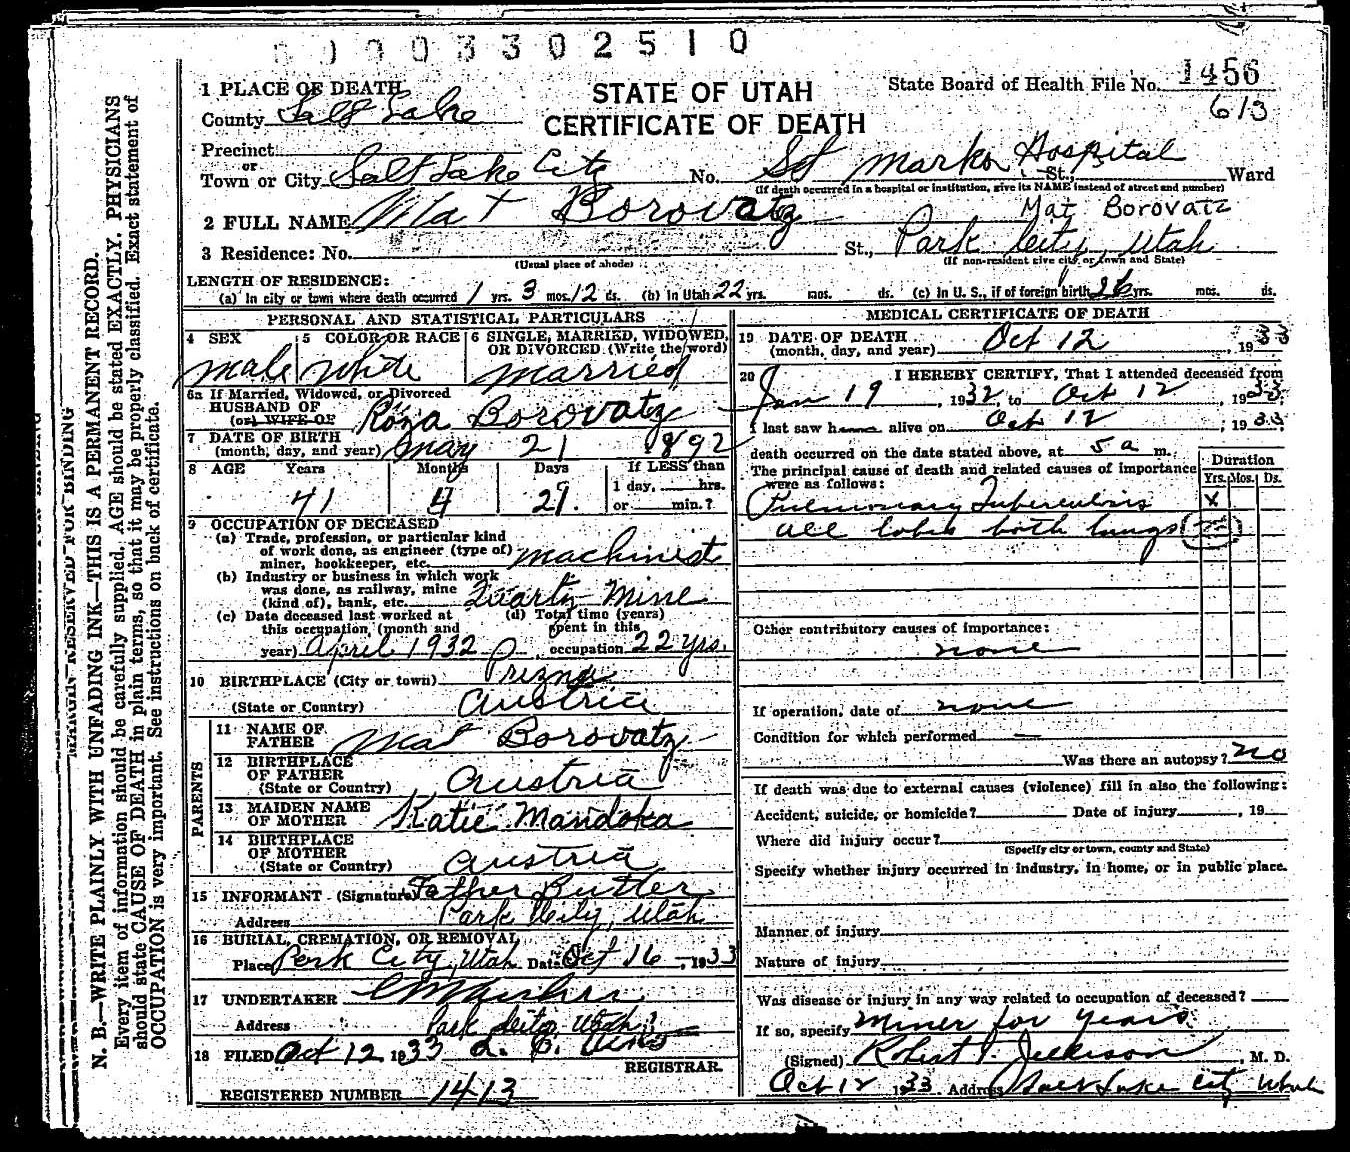 0 0 0 3 3 0 2 5 1 0
STATE OF UTAH
CERTIFICATE OF DEATH
State Board of Health File No. 1456
613
1 PLACE OF DEATH
County Salt Lake
Precinct
or
Town or City Salt Lake City No. St Marks Hospital St., Ward
(If death occurred in a hospital or institution, give its NAME instead of street and number)
2 FULL NAME Mat Borovatz
Mat Borovatz
3 Residence: No. St., Park City, Utah
(Usual place of abode) (If non-resident give city or town and State)
LENGTH OF RESIDENCE:
(a) In city or town where death occurred 1 yrs. 3 mos. 12 ds. (b) In Utah 22 yrs. mos. ds. (c) In U. S., if of foreign birth 26 yrs. mos. ds.
PERSONAL AND STATISTICAL PARTICULARS
4 SEX
male
5 COLOR OR RACE
White
6 SINGLE, MARRIED, WIDOWED,
OR DIVORCED (Write the word)
married
6a If Married, Widowed, or Divorced
HUSBAND OF
(or) WIFE OF Roza Borovatz
7 DATE OF BIRTH
(month, day, and year) May 21 1892
8 AGE Years Months Days If LESS than
1 day, hrs.
41 4 21. or min.?
9 OCCUPATION OF DECEASED
(a) Trade, profession, or particular kind
of work done, as engineer (type of)
miner, bookkeeper, etc. machinist
(b) Industry or business in which work
was done, as railway, mine
(kind of), bank, etc. Quartz Mine
(c) Date deceased last worked at
this occupation, (month and
year) April 1932
(d) Total time (years)
spent in this
occupation 22 yrs.
10 BIRTHPLACE (City or town)
(State or Country) Austria
PARENTS
11 NAME OF
FATHER Mat Borovatz
12 BIRTHPLACE
OF FATHER
(State or Country) Austria
13 MAIDEN NAME
OF MOTHER Katie Mandoka
14 BIRTHPLACE
OF MOTHER
(State or Country) Austria
15 INFORMANT (Signature) Father Butler
Address Park City, Utah
16 BURIAL, CREMATION, OR REMOVAL
Place Park City, Utah Date Oct 16, 1933
17 UNDERTAKER
Address Park City Utah
18 FILED Oct 12 1933
REGISTRAR.
REGISTERED NUMBER 1413
MEDICAL CERTIFICATE OF DEATH
19 DATE OF DEATH
(month, day, and year) Oct 12, 1933
20 I HEREBY CERTIFY, That I attended deceased from
Jan 19, 1932, to Oct 12, 1933
I last saw h alive on Oct 12, 1933
death occurred on the date stated above, at 5 a m.
The principal cause of death and related causes of importance
were as follows:
Duration
Yrs. Mos. Ds.
Pulmonary Tuberculosis X
all lobes both lungs
Other contributory causes of importance:
none
If operation, date of none
Condition for which performed
Was there an autopsy? no
If death was due to external causes (violence) fill in also the following:
Accident, suicide, or homicide? Date of injury , 19
Where did injury occur?
(Specify city or town, county and State)
Specify whether injury occurred in industry, in home, or in public place.
Manner of injury
Nature of injury
Was disease or injury in any way related to occupation of deceased?
If so, specify Miner for years
(Signed) Robert T. Jellison, M. D.
Oct 12 1933. Address Salt Lake City Utah
MARGIN RESERVED FOR BINDING
N. B.—WRITE PLAINLY WITH UNFADING INK—THIS IS A PERMANENT RECORD.
Every item of information should be carefully supplied. AGE should be stated EXACTLY. PHYSICIANS
should state CAUSE OF DEATH in plain terms, so that it may be properly classified. Exact statement of
OCCUPATION is very important. See instructions on back of certificate.